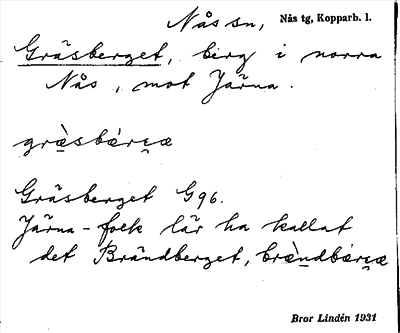 Nås sn, Nås tg, Kopparb. l.
Gräsberget, berg i norra
Nås, mot Järna.
græ̀sbær̨æ
Gräsberget G96.
Järna-folk lär ha kallat
det Brändberget, bræ̀ndbær̨æ
Bror Lindén 1931